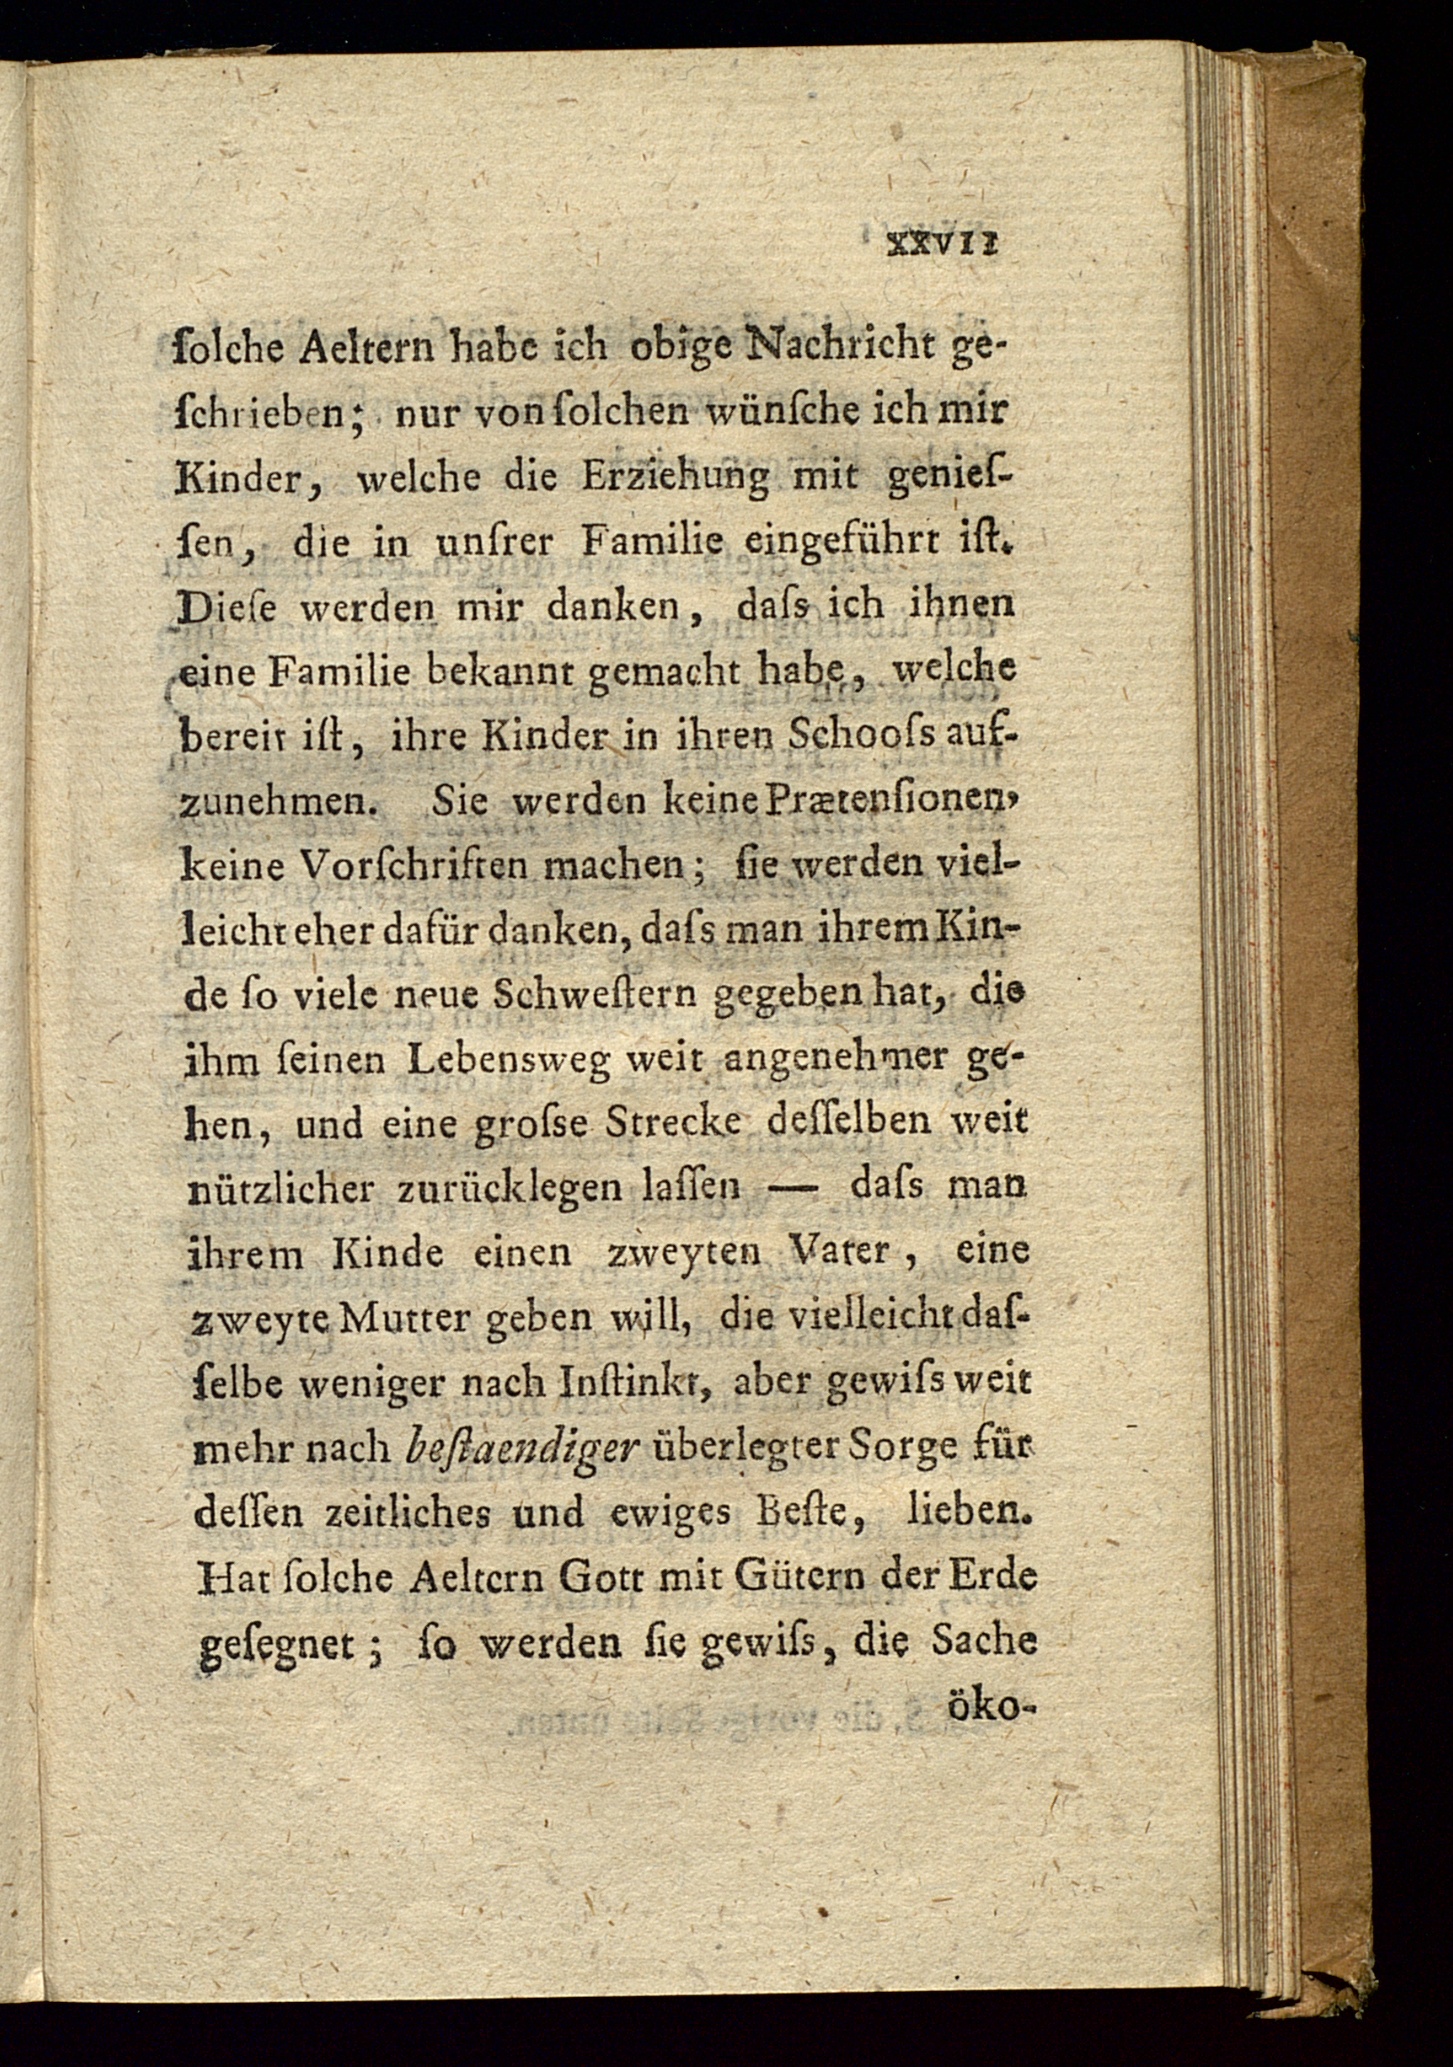 XXVII
ſolche Aeltern habe ich obige Nachricht ge-
ſchrieben; nur von ſolchen wünſche ich mir
Kinder, welche die Erziehung mit genieſ-
ſen, die in unſrer Familie eingeführt iſt.
Dieſe werden mir danken, daſs ich ihnen
eine Familie bekannt gemacht habe, welche
bereit iſt, ihre Kinder in ihren Schooſs auf-
zunehmen. Sie werden keine Prætenſionen,
keine Vorſchriften machen; ſie werden viel-
leicht eher dafür danken, daſs man ihrem Kin-
de ſo viele neue Schweſtern gegeben hat, die
ihm ſeinen Lebensweg weit angenehmer ge-
hen, und eine groſse Strecke deſſelben weit
nützlicher zurücklegen laſſen — daſs man
ihrem Kinde einen zweyten Vater, eine
zweyte Mutter geben will, die vielleicht daſ-
ſelbe weniger nach Inſtinkt, aber gewiſs weit
mehr nach beſtaendiger überlegter Sorge für
deſſen zeitliches und ewiges Beſte, lieben.
Hat ſolche Aeltern Gott mit Gütern der Erde
geſegnet; ſo werden ſie gewiſs, die Sache
öko-